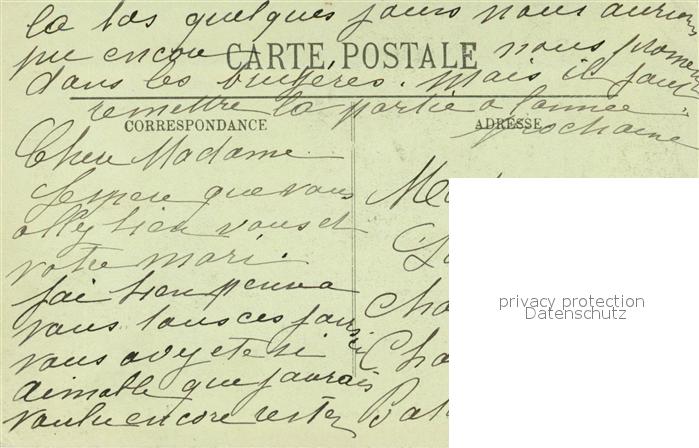 la bas quelques jours nous aurions
pu encore nous promener
dans les bruyères. Mais il faut
remettre la partie a l'année
prochaine
CARTE POSTALE
CORRESPONDANCE
ADRESSE
Chere Madame
J'espere que vous
allez bien vous et
votre mari.
J'ai bien pensé a
vous tous ces jours ci
vous avez ete si
aimable que j'aurais
voulu encore rester
privacy protection
Datenschutz